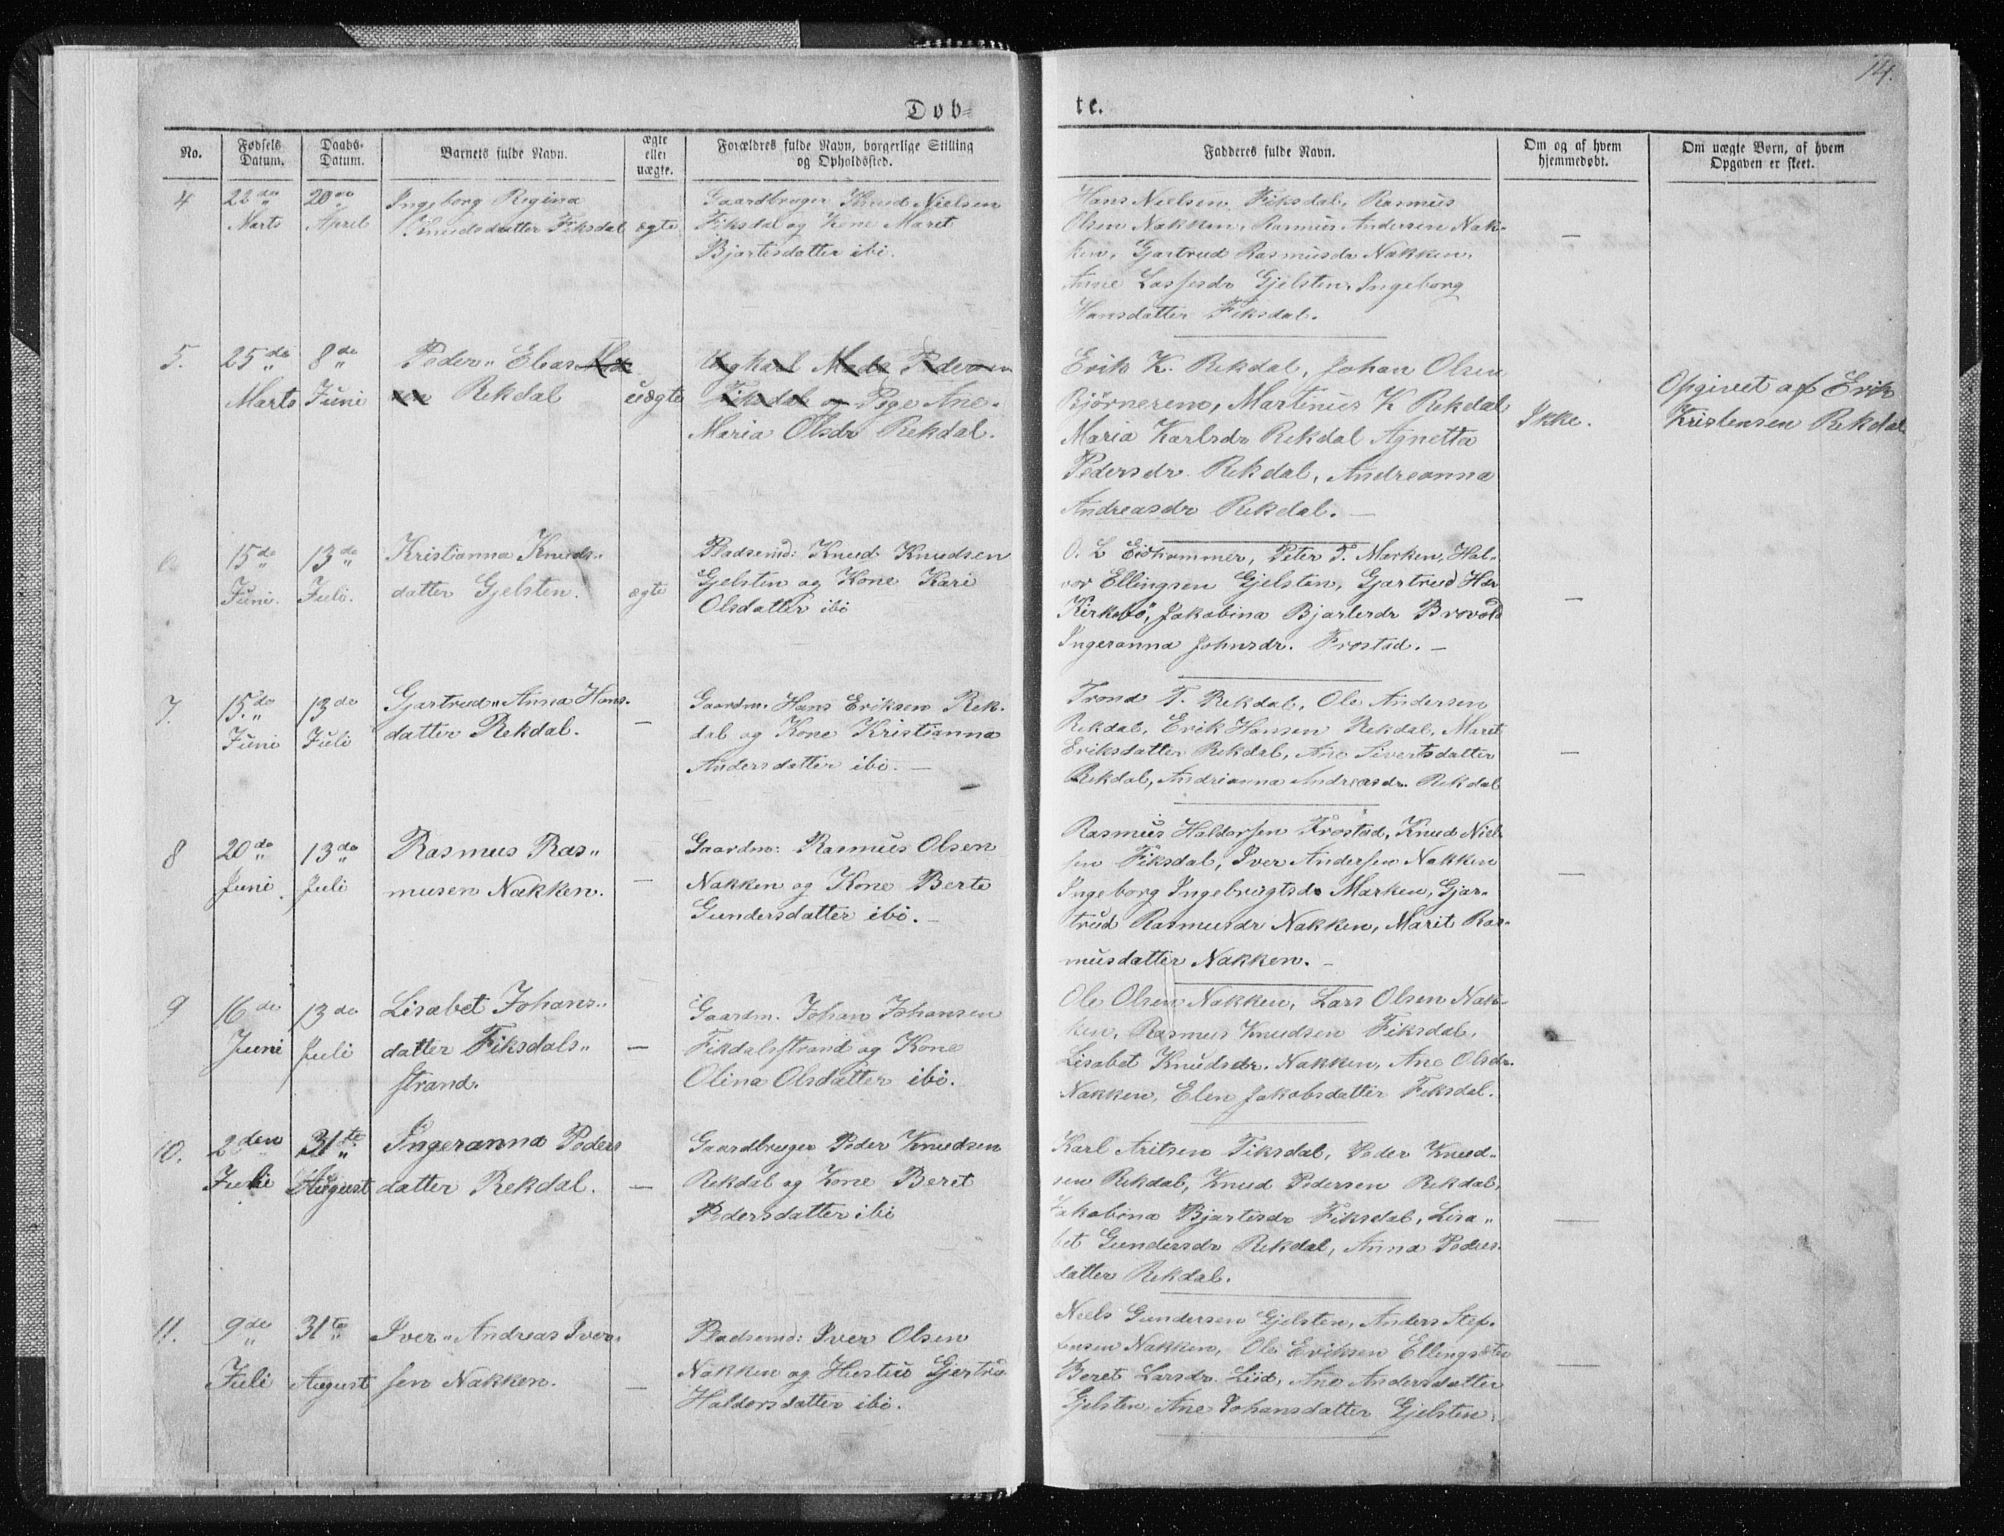 14.
Døb-
te.
No.
Fødsels Datum.
Daabs-Datum.
Barnets fulde Navn.
ægte eller uægte.
Forældres fulde Navn, borgerlige Stilling og Opholdssted.
Fadderes fulde Navn.
Om og af hvem hjemmedøbt.
Om uægte Børn, af hvem Opgaven er skeet.
4
22de Marts
20de April
Ingeborg Regina
Knudsdatter Fiksdal
ægte
Gaardbruger Knud Nielsen
Fiksdal og Kone Maret
Bjartesdatter ibi.
Hans Nielsen Fiksdal, Rasmus
Olsen Nakken, Rasmus Andersen Nak-
ken, Gjartrud Rasmusdr Nakken,
Ane Lassesdr Gjelsten, Ingeborg
Hansdatter Fiksdal.
—
5.
25de Marts
8de Juni
Peder Elias
Rekdal
uægte
Ungkarl Mads Pedersen
Fiksdal og Pige Ane
Maria Olsdr Rekdal.
Erik K. Rekdal, Johan Olsen
Bjørnerem, Martinus K Rekdal
Maria Karlsdr Rekdal Agnetta
Pedersdr Rekdal, Andreanna
Andreasdr Rekdal. —
Ikke.
Opgivet af Erik
Kristensen Rekdal
6
15de Juni.
13de Juli.
Kristianna Knuds-
datter Gjelsten.
ægte
Pladsemd: Knud Knudsen
Gjelsten og Kone Kari
Olsdatter ibi
O. L Eidhammer, Peter T. Marken, Hal-
vor Ellingsen Gjelsten, Gjartrud Har
Kirkebö, Jakobina Bjartesdr Brovold
Ingeranna Johnsdr. Frostad. —
—
7.
15de Juni
13de Juli
Gjartrud Anna Hans-
datter Rekdal.
—
Gaardm. Hans Eriksen Rek-
dal og Kone Kristianna
Andersdatter ibi. —
Trond T. Rekdal, Ole Andersen
Rekdal, Erik Hansen Rekdal, Marit
Eriksdatter Rekdal, Ane Sivertsdatter
Rekdal, Andrianna Andreasdr. Rekdal
—
8
20de Juni.
13de Juli
Rasmus Ras-
musen Nakken.
—
Gaardm: Rasmus Olsen
Nakken og Kone Berte
Gundersdatter ibi. —
Rasmus Haldorsen Frostad, Knud Niel-
sen Fiksdal, Iver Andersen Nakken
Ingeborg Ingebrigtsdr Marken, Gjar-
trud Rasmusdr Nakken, Marit Ras-
musdatter Nakken. —
—
9
16de Juni
13de Juli
Lisabet Johans-
datter Fiksdals-
strand.
—
Gaardm. Johan Johansen
Fikdalsstrand og Kone
Olina Olsdatter ibi.
Ole Olsen Nakken, Lars Olsen Nak-
ken, Rasmus Knudsen Fiksdal,
Lisabet Knudsdr. Nakken, Ane Olsdr.
Nakken, Elen Jakobsdatter Fiksdal.
—
10.
2den Juli
31te August
Ingeranna Peders
datter Rekdal.
—
Gaardbruger Peder Knudsen
Rekdal og Kone Beret
Pedersdatter ibi
Karl Aritsen Fiksdal, Peder Knud-
sen Rekdal, Knud Pedersen Rekdal,
Jakobina Bjartesdr Fiksdal, Lisa-
bet Gundersdr Rekdal, Anna Peders-
datter Rekdal.
—
11.
9de Juli
31te August
Iver Andreas Iver-
sen Nakken.
—
Pladsemd: Iver Olsen
Nakken og Hustru Gjertru
Haldorsdatter ibi.
Niels Gundersen Gjelsten, Anders Stef-
fensen Nakken, Ole Eriksen Ellingsæter
Beret Larsdr Liid, Ane Andersdatter
Gjelsten, Ane Johansdatter Gjelsten.
—